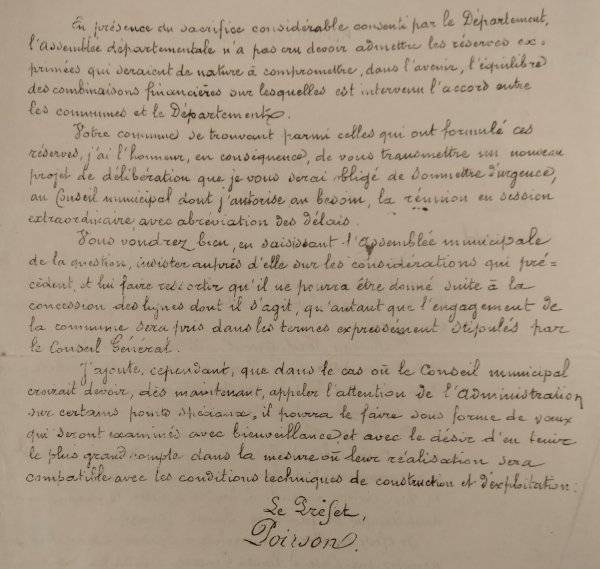 En présence du sacrifice considérable consenti par le Département,
l'Assemblée départementale n'a pas cru devoir admettre les réserves ex-
primées qui seraient de nature à compromettre, dans l'avenir, l'équilibre
des combinaisons financières sur lesquelles est intervenu l'accord entre
les communes et le Département.
Votre commune se trouvant parmi celles qui ont formulé ces
réserves, j'ai l'honneur, en conséquence, de vous transmettre un nouveau
projet de délibération que je vous serai obligé de soumettre d'urgence,
au Conseil municipal dont j'autorise au besoin, la réunion en session
extraordinaire, avec abréviation des délais.
Vous voudrez bien, en saisissant l'Assemblée municipale
de la question, insister auprès d'elle sur les considérations qui pré-
cèdent, et lui faire ressortir qu'il ne pourra être donné suite à la
concession des lignes dont il s'agit, qu'autant que l'engagement de
la commune sera pris dans les termes expressément stipulés par
le Conseil Général.
J'ajoute, cependant, que dans le cas où le Conseil municipal
croirait devoir, dès maintenant, appeler l'attention de l'Administration
sur certains points spéciaux, il pourra le faire sous forme de vœux
qui seront examinés avec bienveillance et avec le désir d'en tenir
le plus grand compte dans la mesure où leur réalisation sera
compatible avec les conditions techniques de construction et d'exploitation.
Le Préfet,
Poirson.